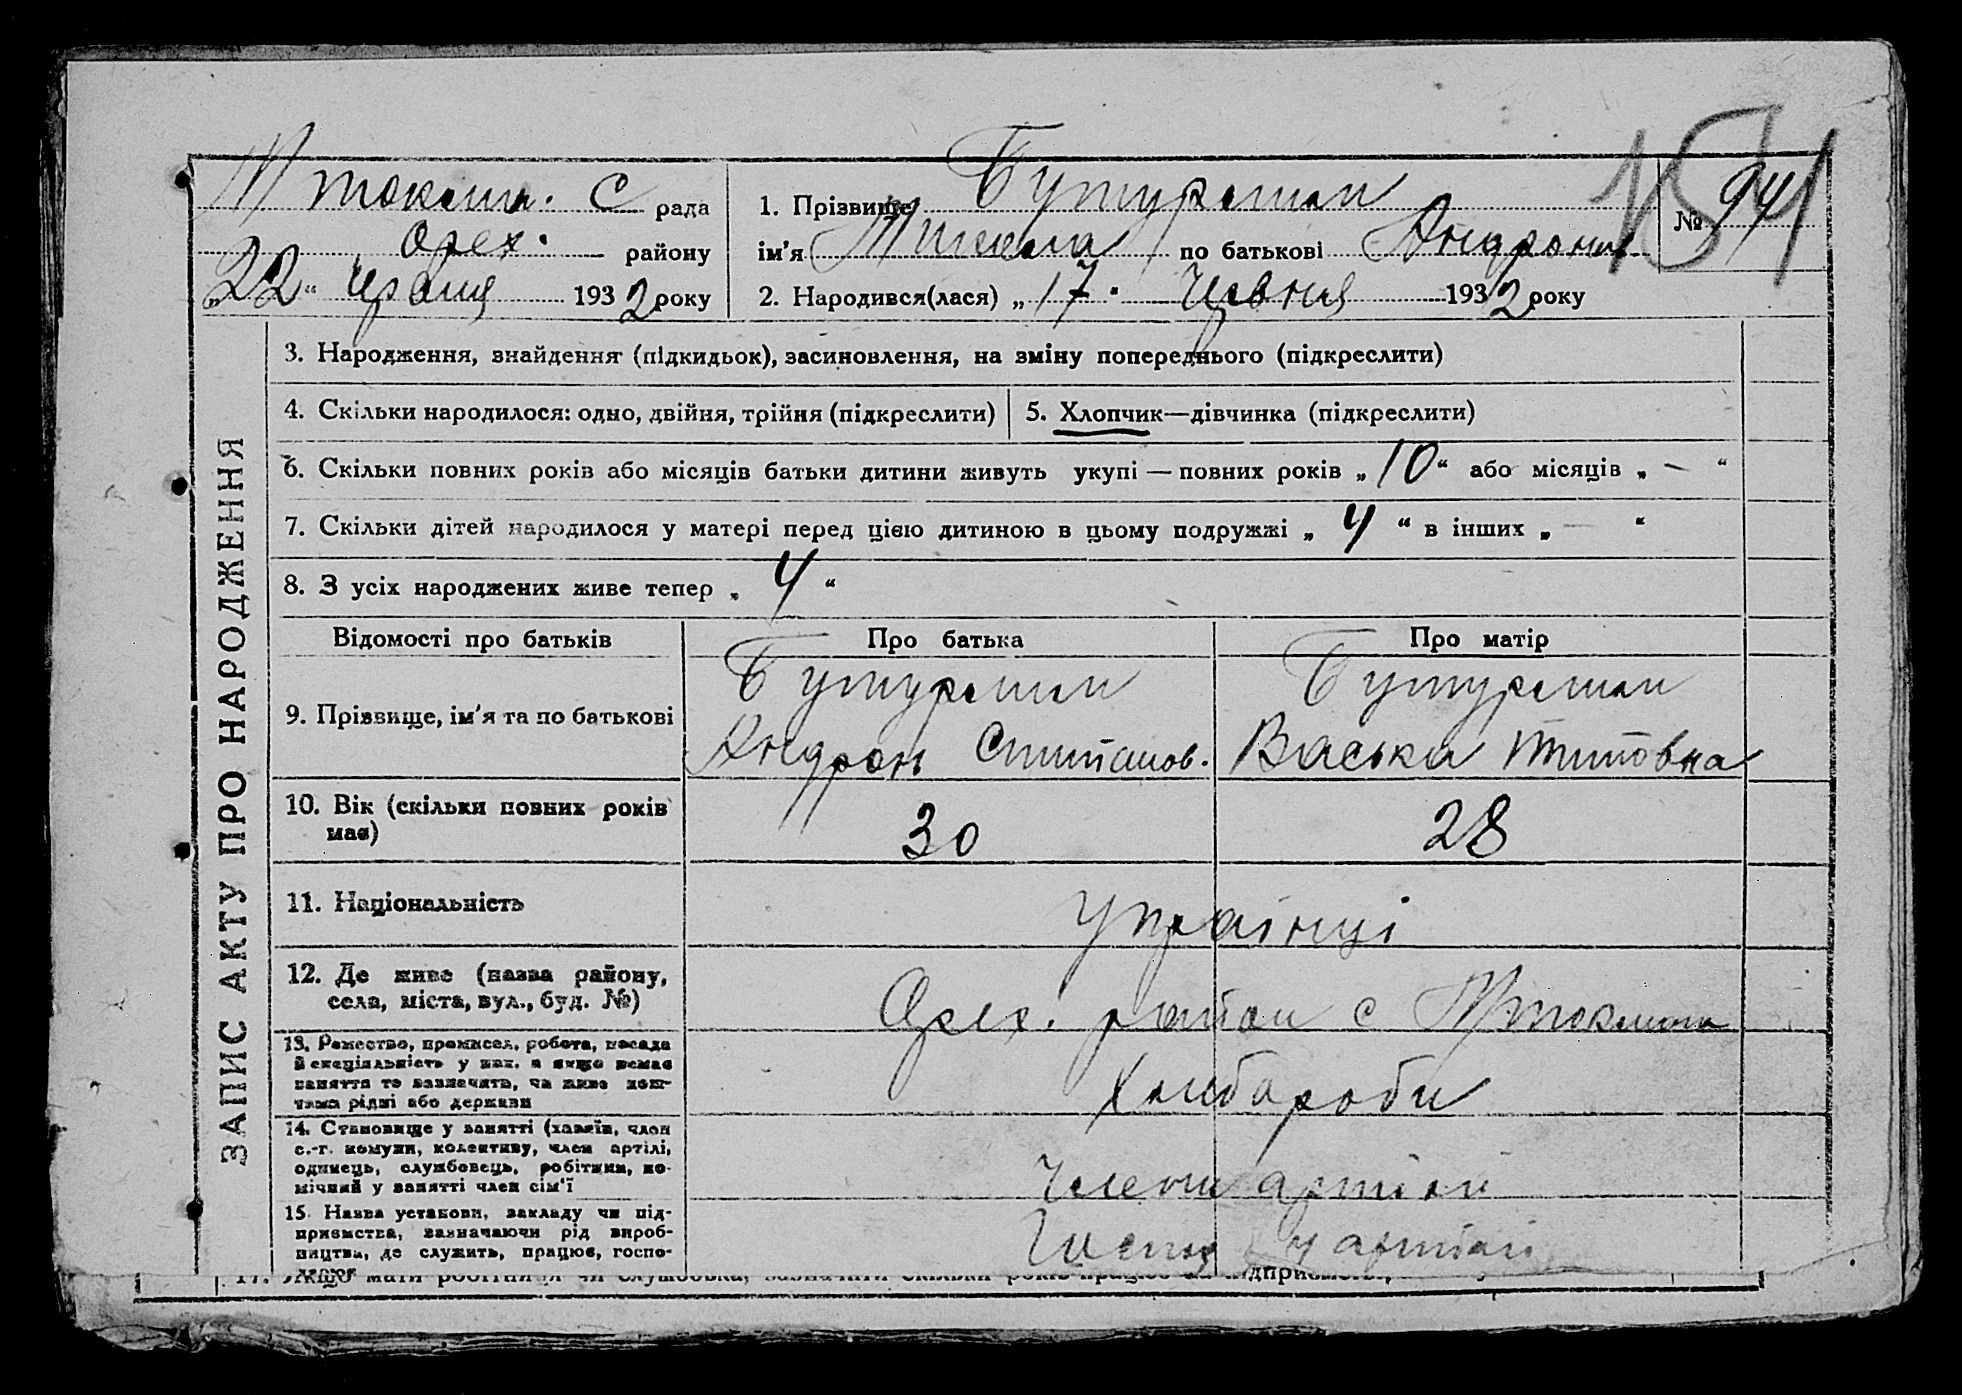 М Токмач. С рада
Орех. району
„22“ червня 1932 року
1. Прізвище Бутурлин
ім'я Микола по батькові Андронов
2. Народився(лася) „17. Червня 1932 року
№ 94
151
ЗАПИС АКТУ ПРО НАРОДЖЕННЯ
3. Народження, знайдення (підкидьок), засиновлення, на зміну попереднього (підкреслити)
4. Скільки народилося: одно, двійня, трійня (підкреслити)
5. Хлопчик—дівчинка (підкреслити)
6. Скільки повних років або місяців батьки дитини живуть укупі — повних років „10“ або місяців „ — “
7. Скільки дітей народилося у матері перед цією дитиною в цьому подружжі „ 4 “ в інших „ — “
8. З усіх народжених живе тепер „ 4 “
Відомості про батьків
Про батька
Про матір
9. Прізвище, ім'я та по батькові
Бутурлин
Андрон
Бутурлин
Васька Титовна
10. Вік (скільки повних років має)
30
28
11. Національність
Українці
12. Де живе (назва району,
села, міста, вул., буд. №)
Орех. район с М Токмачка
13. Ремество, промисел, робота, посада
й спеціяльність у нах. а якщо немає
заняття то зазначить, чи живе кош-
тами рідні або держави
Хлибароби
14. Становище у занятті (хазяїн, член
с.-г. комуни, колективу, член артілі,
одинець, службовець, робітник, по-
мічний у занятті член сім'ї
Члени артіли
15. Назва установи, закладу чи під-
приємства, зазначаючи рід вироб-
ництва, де служить, працює, госпо-
дарює
у артілі
17. Якщо мати робітниця чи службовка, зазначити скільки років працює на підприємстві,